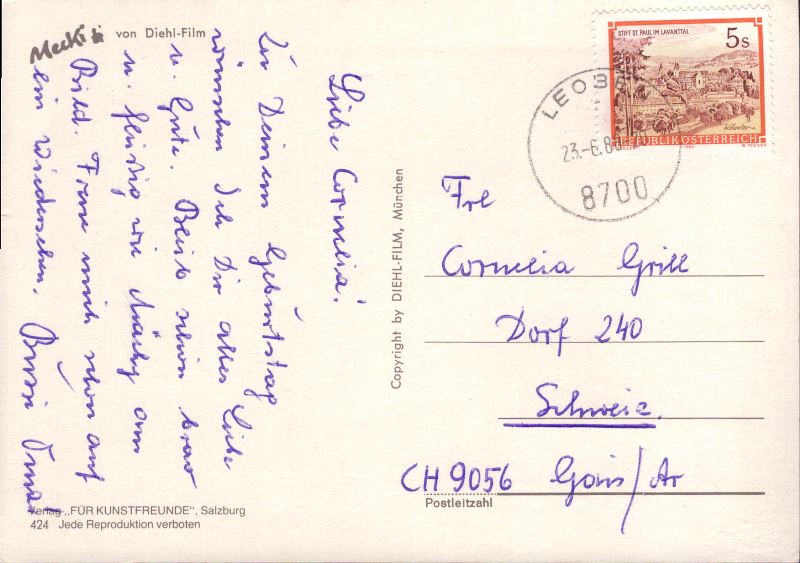 Mecki
von Diehl-Film
Liebe Cornelia!
Zu Deinem Geburtstag
wünschen ich Dir alles Liebe
u. Gute. Bleib schön brav
u. fleißig wie Mächy am
Bild. Freue mich schon auf
ein Wiedersehen. Bussi
Verlag „FÜR KUNSTFREUNDE“, Salzburg
424 Jede Reproduktion verboten
Copyright by DIEHL-FILM, München
STIFT ST. PAUL IM LAVANTTAL
5s
REPUBLIK ÖSTERREICH
LEOB
23.-6.8
8700
Frl
Cornelia Grill
Dorf 240
Schweiz.
CH 9056 Gais/Ar
Postleitzahl